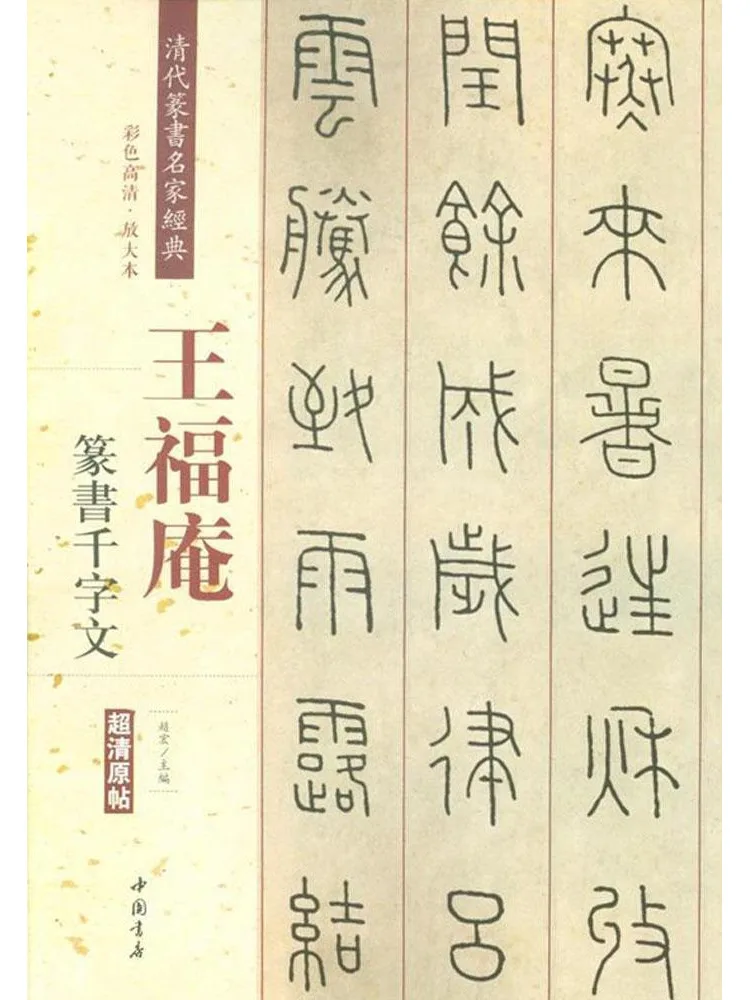 寒來暑往秋收
閏餘成歲律呂
雲騰致雨露結
清代篆書名家經典
彩色高清·放大本
王福庵
篆書千字文
趙宏/主編
超清原帖
中国書店